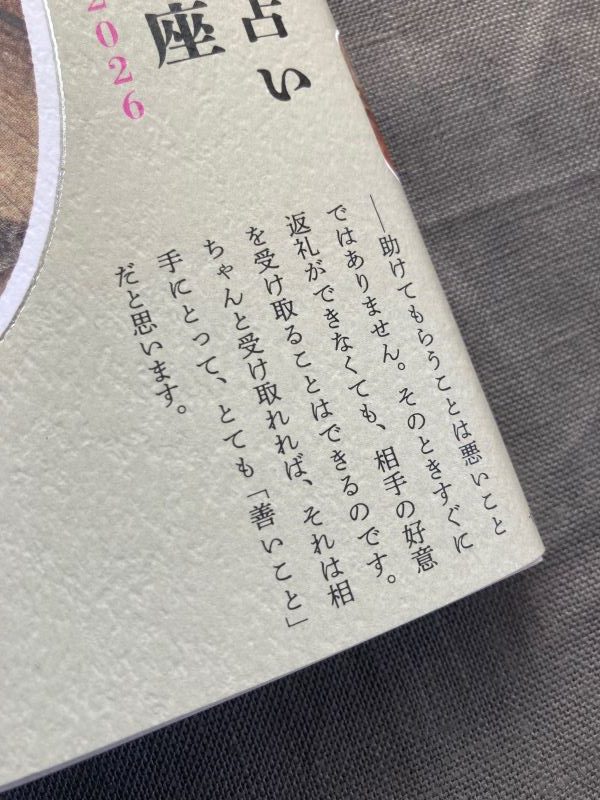 占い
座
2026
―助けてもらうことは悪いこと
ではありません。そのときすぐに
返礼ができなくても、相手の好意
を受け取ることはできるのです。
ちゃんと受け取れれば、それは相
手にとって、とても「善いこと」
だと思います。